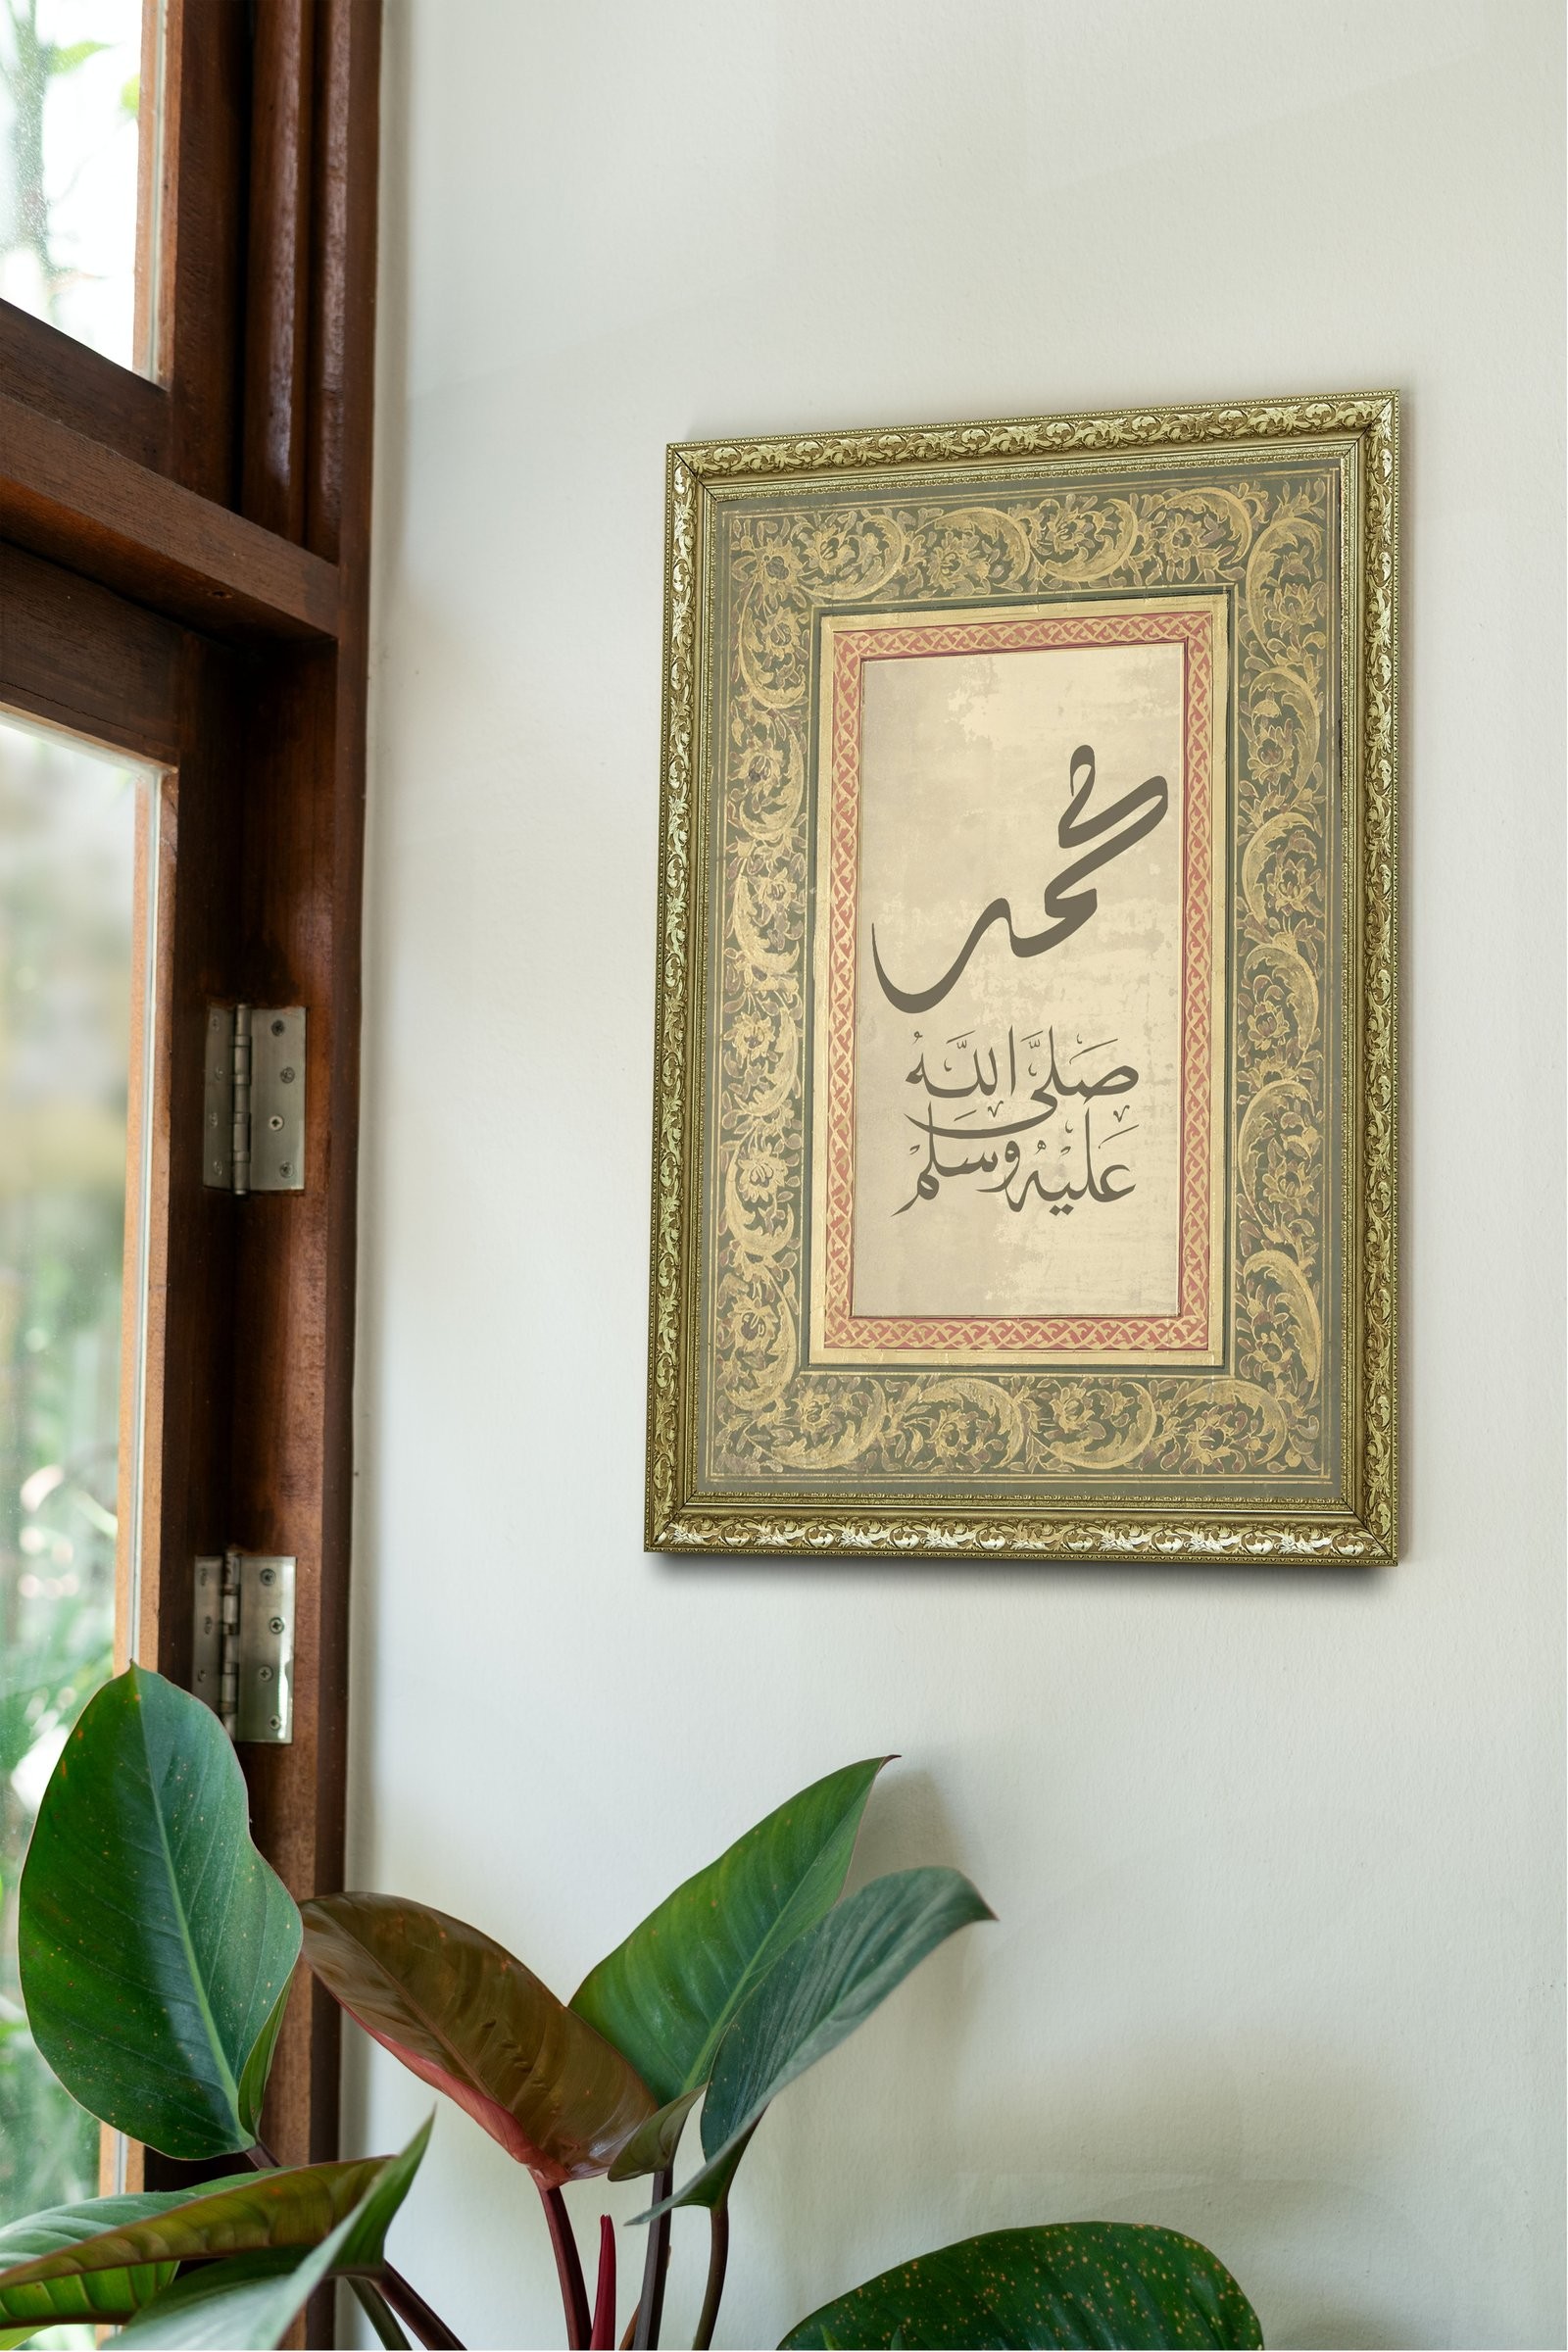 محمد
صَلَّى اللَّهُ
عَلَيْهِ وَسَلَّمَ